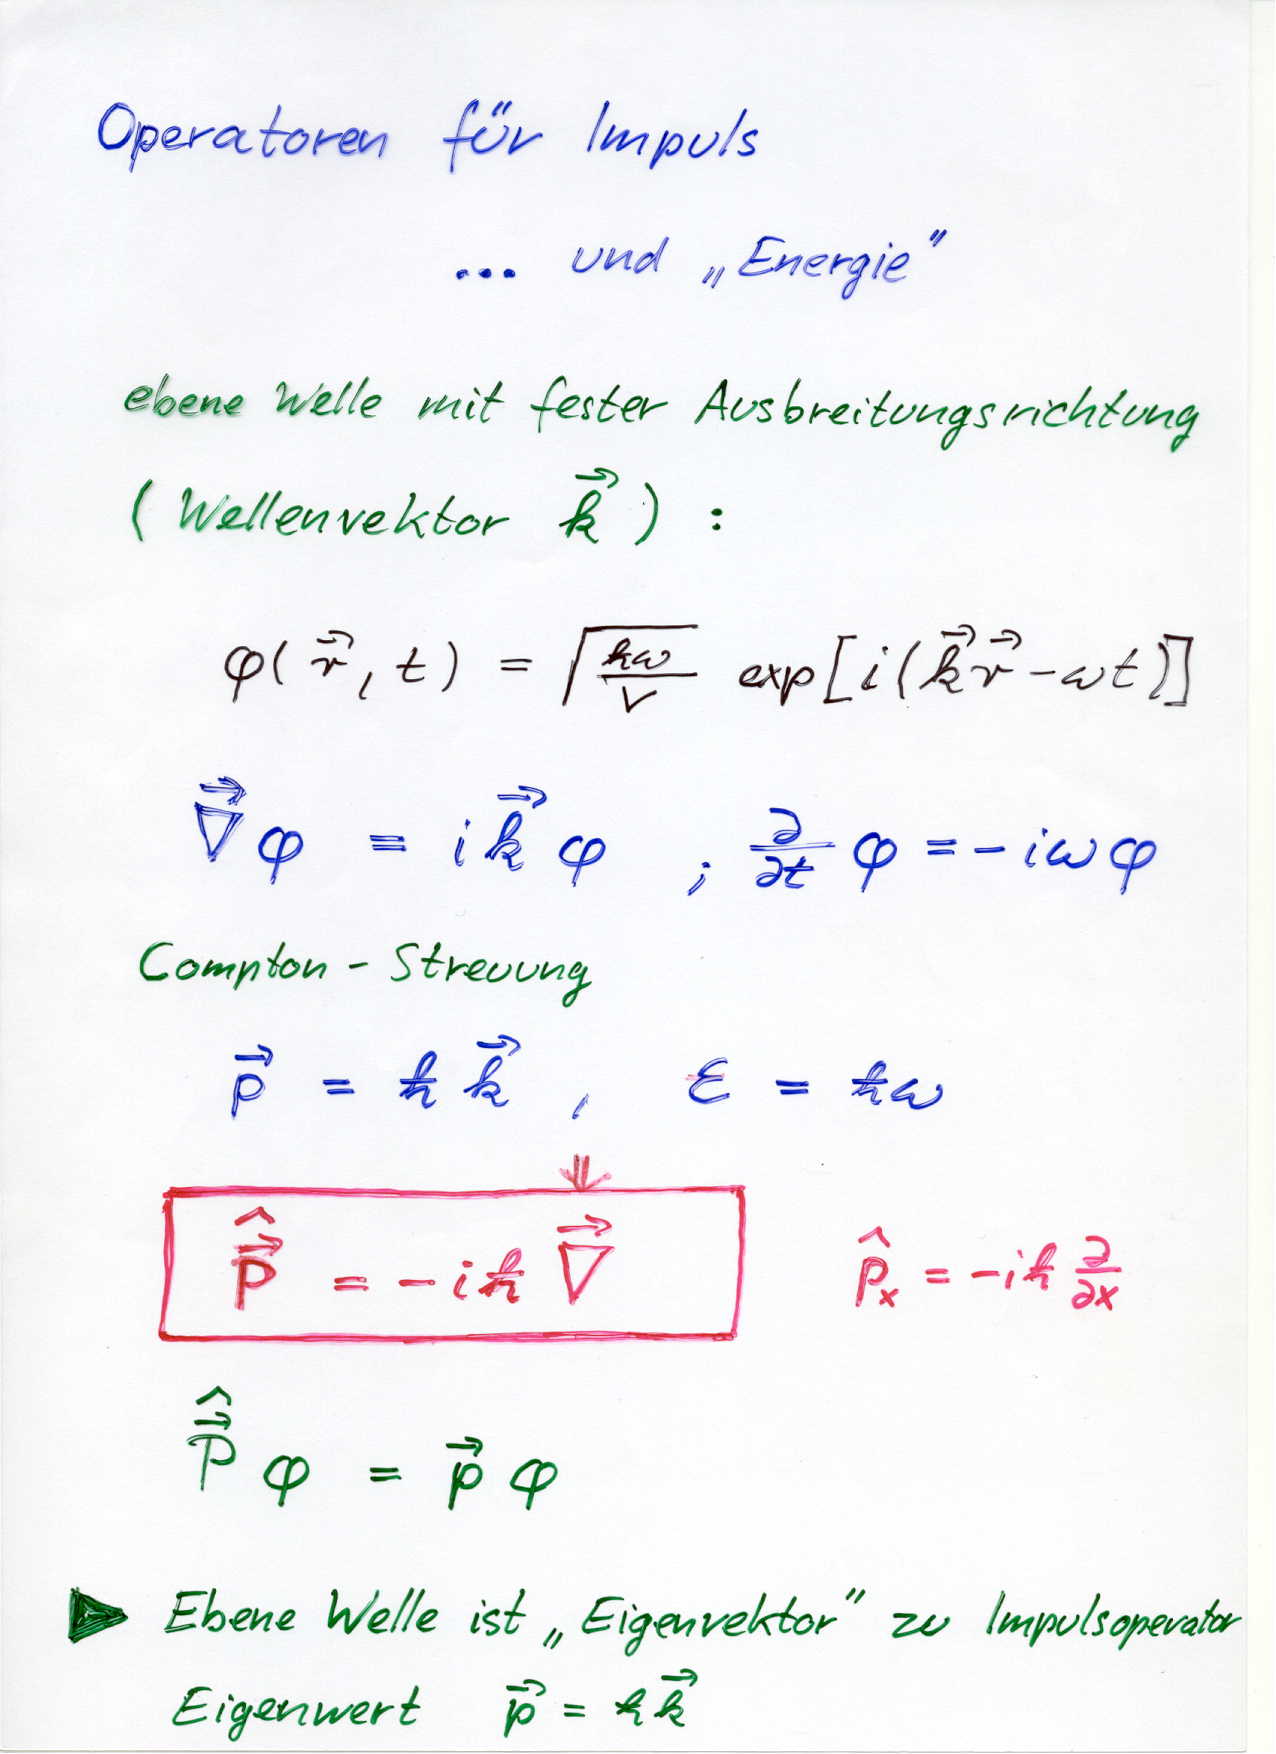 Operatoren für Impuls
... und „Energie"
ebene Welle mit fester Ausbreitungsrichtung
(Wellenvektor k⃗) :
φ(r⃗, t) = √(ħω/V) exp[i(k⃗r⃗-ωt)]
∇⃗φ = ik⃗φ ; ∂/∂t φ = -iωφ
Compton - Streuung
p⃗ = ħk⃗ , ε = ħω
⇓
p⃗̂ = -iħ∇⃗ p̂ₓ = -iħ ∂/∂x
p⃗̂ φ = p⃗ φ
▶ Ebene Welle ist „Eigenvektor" zu Impulsoperator
Eigenwert p⃗ = ħk⃗